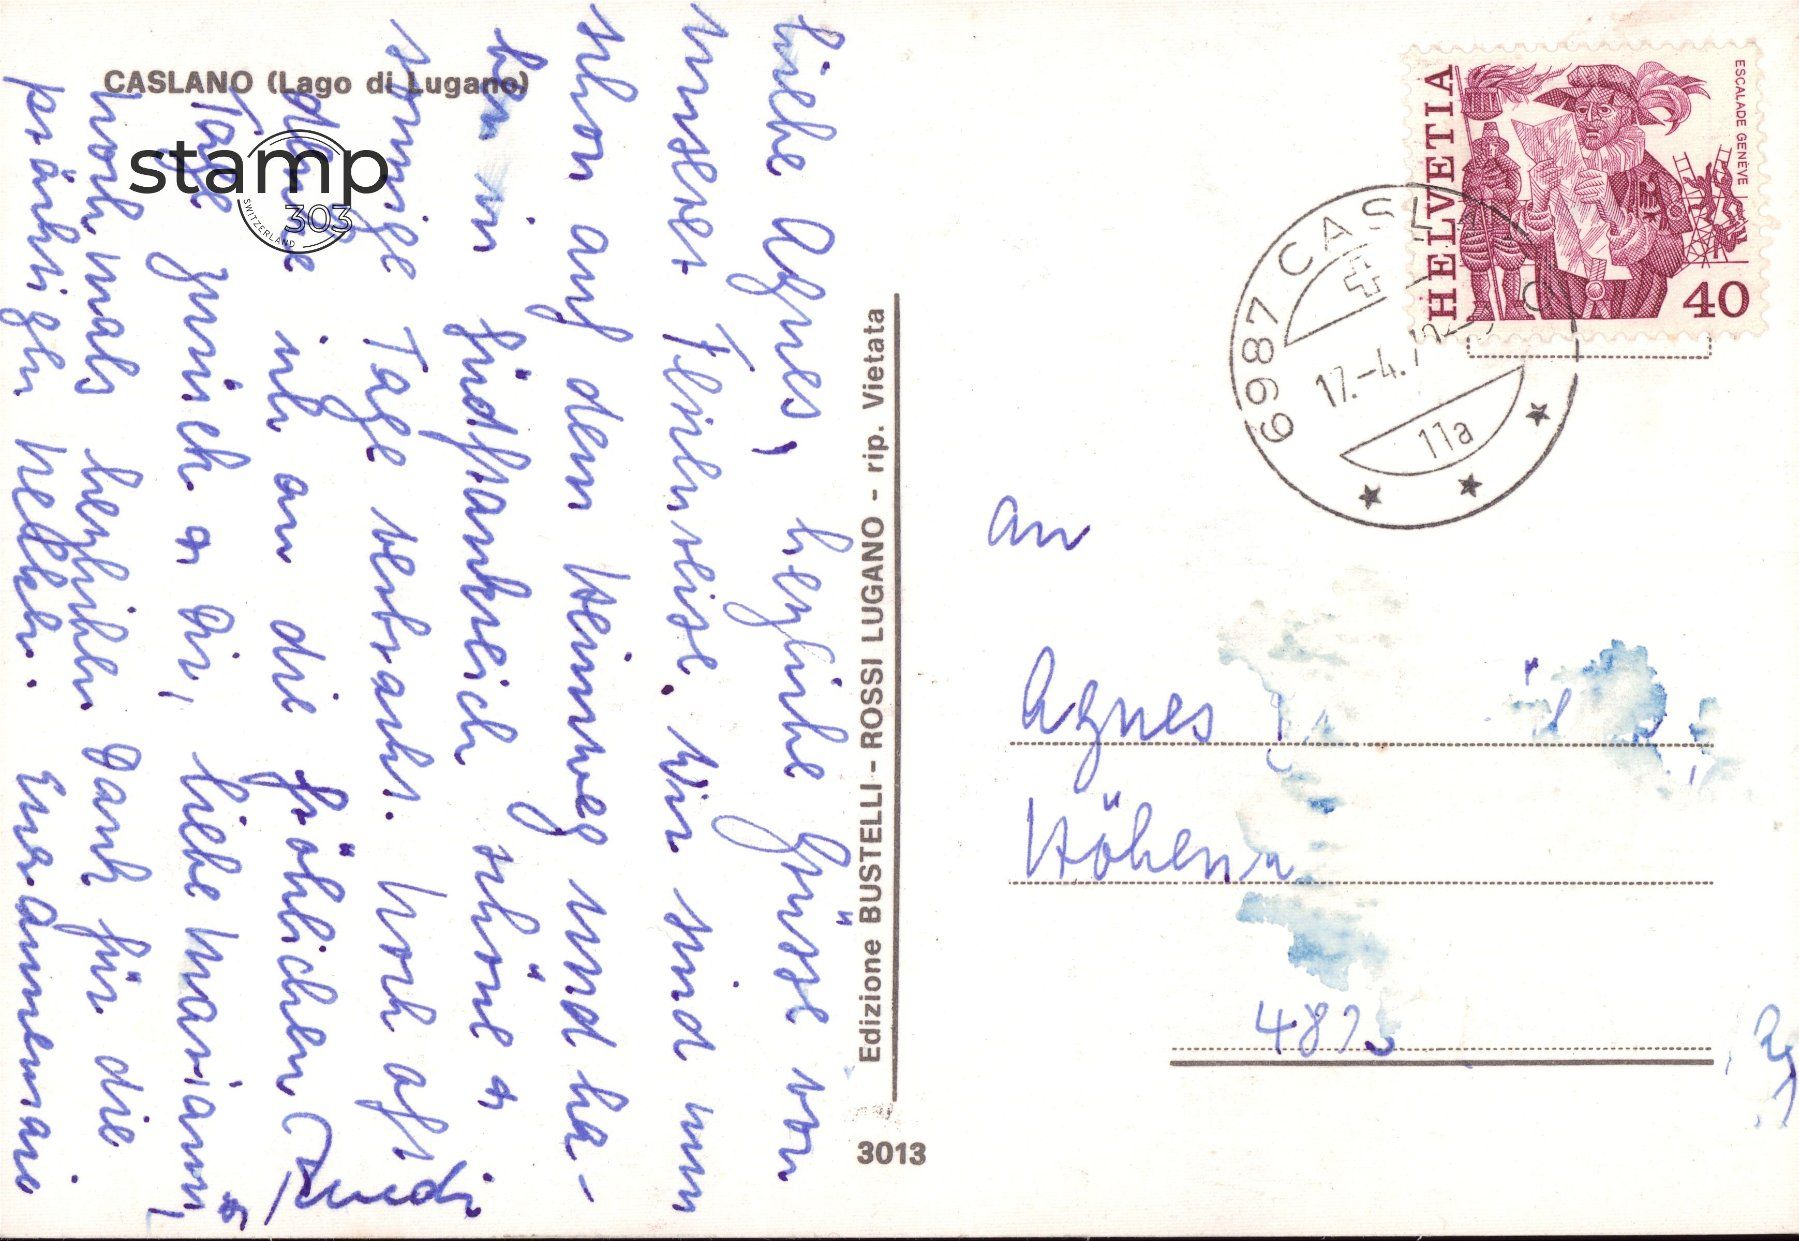 CASLANO (Lago di Lugano)
stamp
303
SWITZERLAND
Liebe Agnes, herzliche Grüsse von
unserer Flitzreise. Wir sind nun
schon auf dem Heimweg und ha-
ben in Südfrankreich schöne &
sonnige Tage verbracht. Noch oft
denke ich an die fröhlichen
Tage zurück & Dir, liebe Mariann,
nochmals herzlichen Dank für die
prächtigen Nelken. Eure Annemarie
& Ruedi
Edizione BUSTELLI - ROSSI LUGANO - rip. Vietata
3013
HELVETIA
ESCALADE GENÈVE
40
6987 CASLANO
17.-4.7
11a
An
Agnes
487